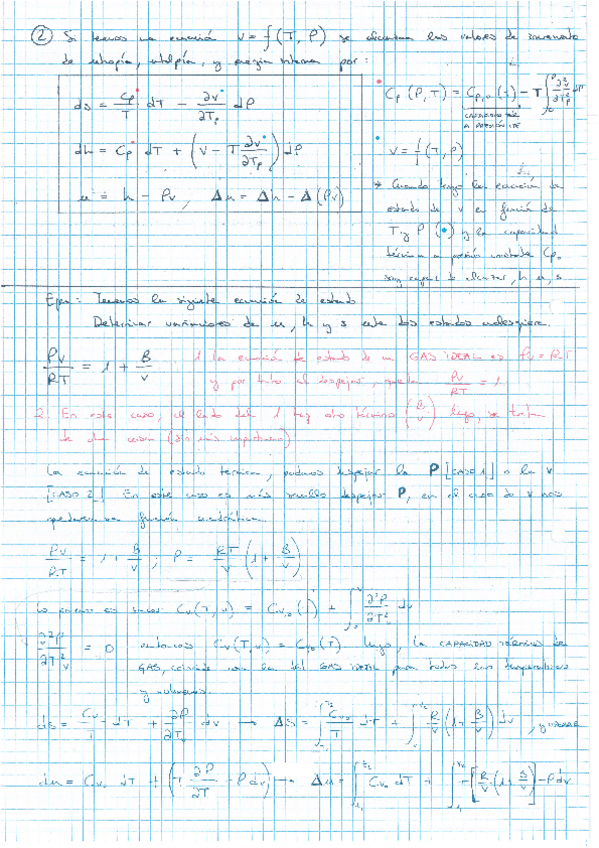 ② Si tenemos una ecuación v = f(T, P) se determinan los valores de incremento
de entropía, entalpía, y energía interna por:
ds = Cp/T dT − ∂v/∂T_P dP
dh = Cp dT + (v − T ∂v/∂T_P) dP
u = h − Pv, Δu = Δh − Δ(Pv)
• Cp (P, T) = Cp,o (T) − T ∫₀^P ∂²v/∂T²_P dP
CAPACIDAD
A PRESIÓN
• v = f(T, P)
→ Cuando tengo la ecuación de
estado de v en función de
T y P (•) y la capacidad
térmica a presión constante Cp₀
soy capaz de h, u, s
Ejm: Tenemos la siguiente ecuación de estado
Determinar variaciones de u, h y s entre dos estados cualesquiera.
Pv/RT = 1 + B/v
1 la ecuación de estado de un GAS IDEAL es Pv = RT
y por tanto al despejar, queda Pv/RT = 1
2. En este caso, al lado del 1 hay otro término (B/v) luego, se trata
de (sin más importancia)
La ecuación de estado térmica, podemos despejar la P [CASO 1] o la v
[CASO 2]. En este caso es más sencillo despejar P, en el caso de v nos
quedaría una función cuadrática.
Pv/RT = 1 + B/v ; P = RT/v (1 + B/v)
Lo primero es sacar Cv(T, v) = Cv,o (T) + ∫ ∂²P/∂T²_v dv
∂²P/∂T²_v = 0 entonces Cv(T, v) = Cv₀ (T) luego, la CAPACIDAD TÉRMICA DE
GAS, coincide con la del GAS IDEAL para todas las temperaturas
y volúmenes.
ds = Cv/T dT + ∂P/∂T_v dv → Δs = ∫ Cv₀/T dT + ∫ R/v (1 + B/v) dv, y
du = Cv₀ dT + (T ∂P/∂T − P dv) → Δu = ∫ Cv₀ dT + ∫ T[R/v (1 + B/v)] − P dv